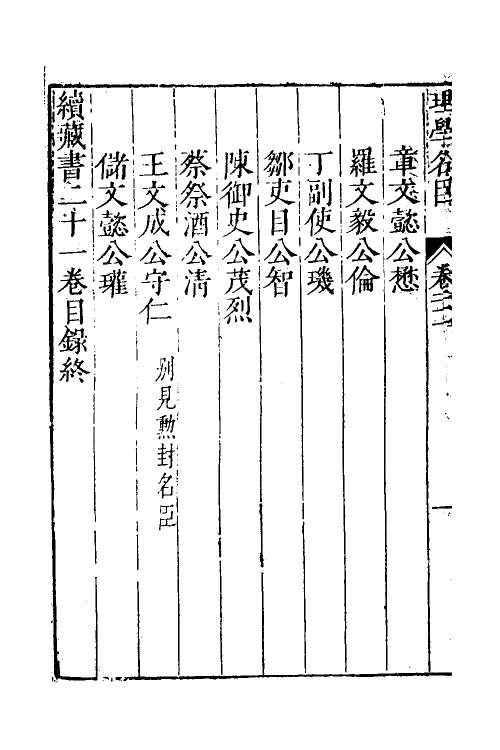 理學名臣 卷二十一 一
章文懿公懋
羅文毅公倫
丁副使公璣
鄒吏目公智
陳御史公茂烈
蔡祭酒公清
王文成公守仁 别見勲封名臣
儲文懿公瓘
續藏書二十一卷目錄終